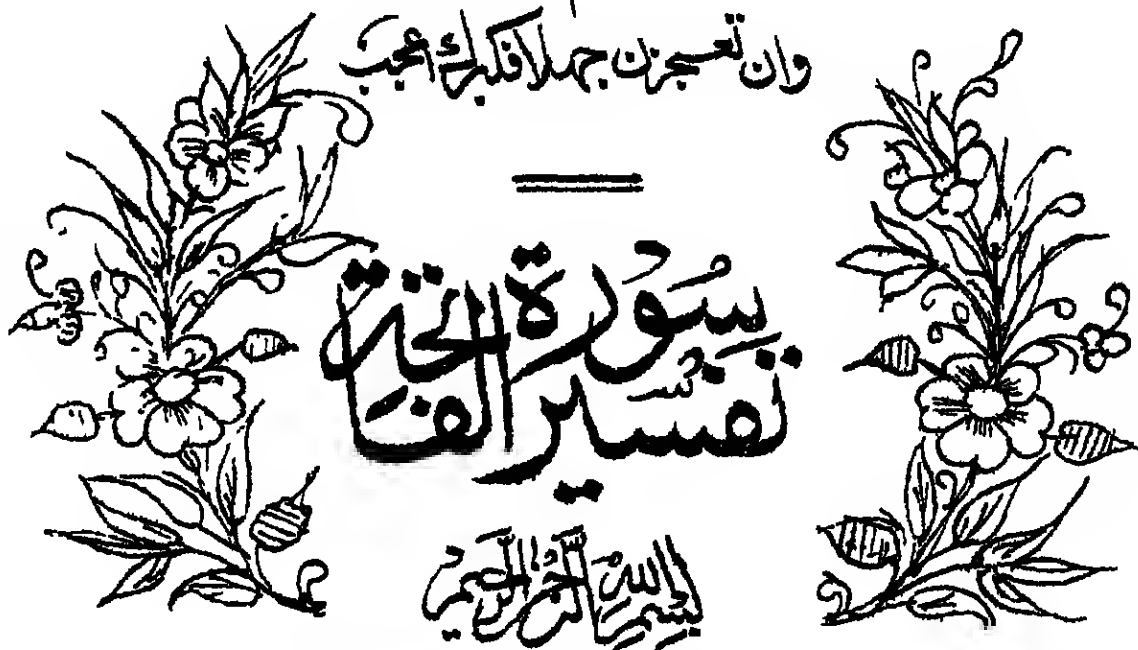 وان تعسجزن جهلا فكبرك أعجب
تفسير سورة الفاتحة
بسم الله الرحمن الرحيم